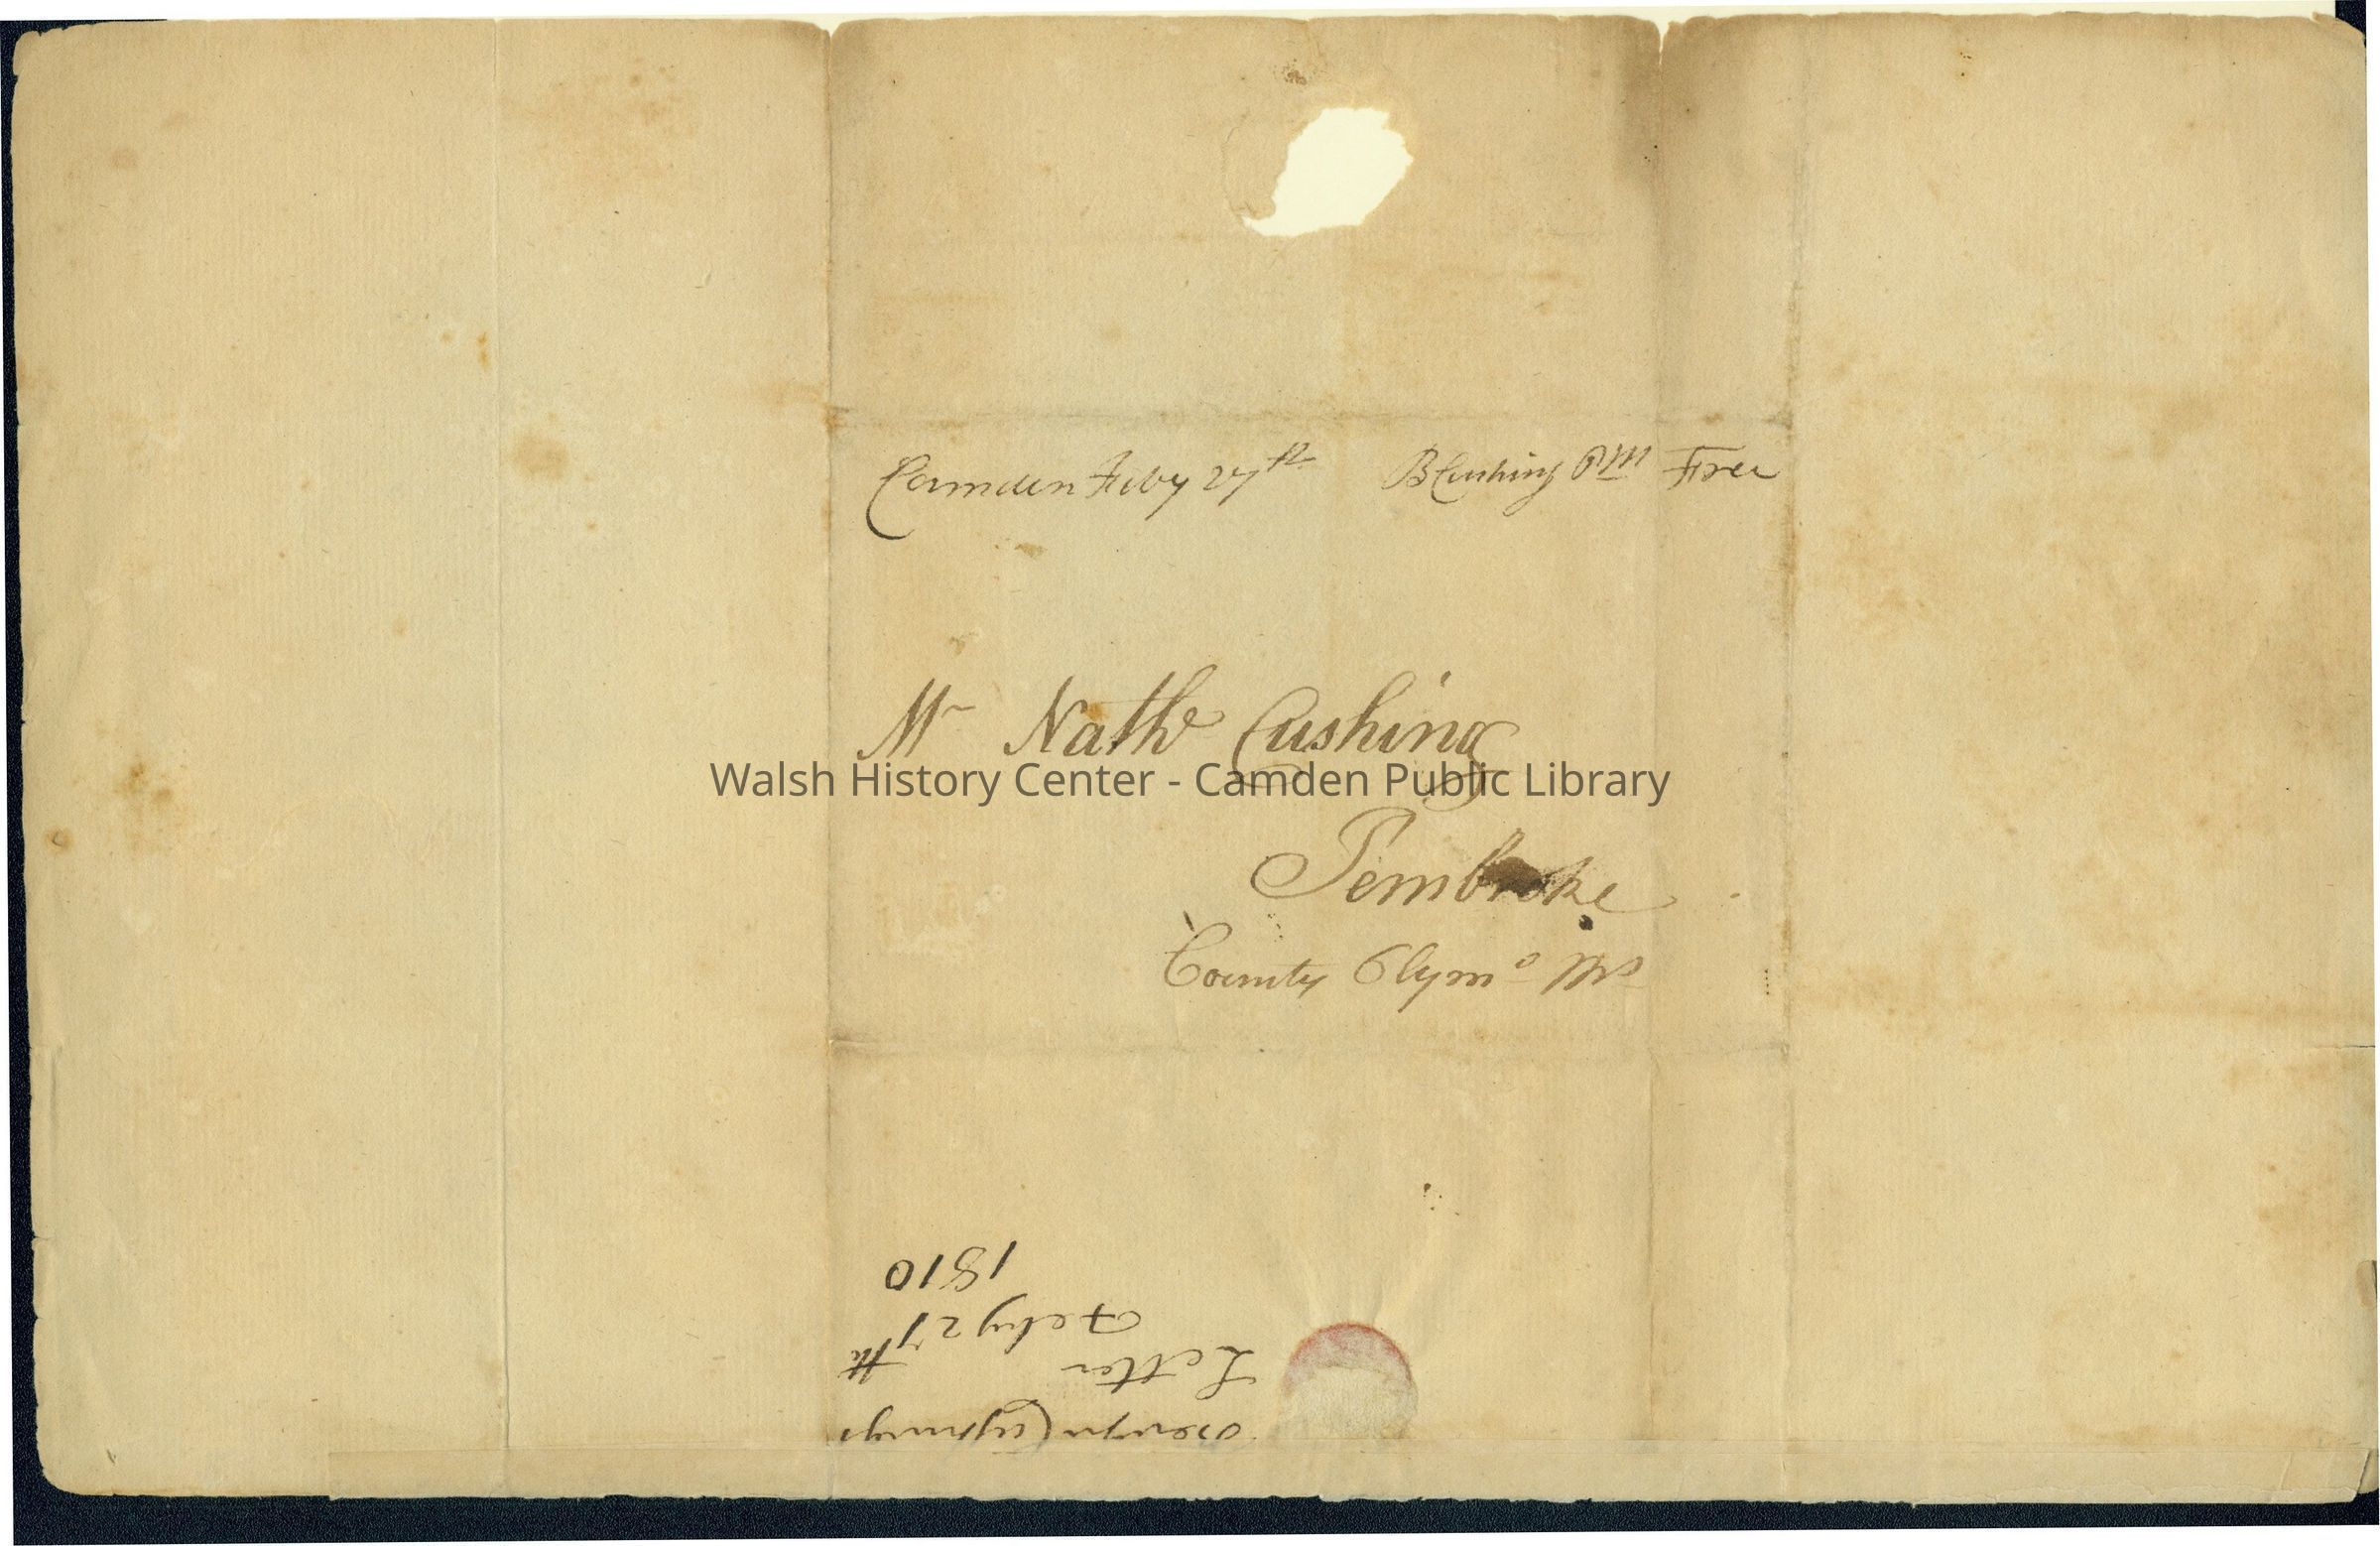 Camden Feby 27th BCushing PM Free
Mr Nathl Cushing
Walsh History Center - Camden Public Library
Pembroke
County Plymo Ms
Cushings
Letter
Feby 27th
1810